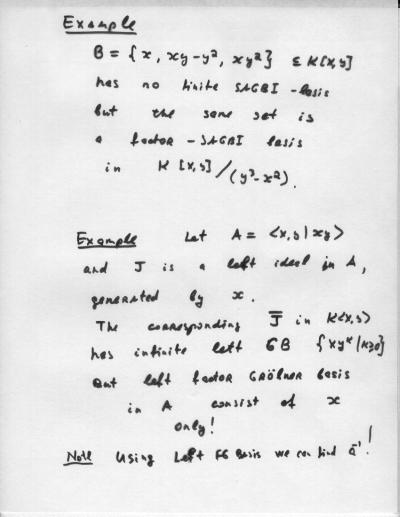 Example
B = { x, xy-y², xy² } ⊆ K[x,y]
has no finite SAGBI-basis
but the same set is
a factor-SAGBI basis
in K[x,y]/(y³-x²).
Example Let A = <x,y | xy>
and J is a left ideal in A,
generated by x.
The corresponding J̅ in K<x,y>
has infinite left GB {xyᵏ | k≥0}
But left factor GRÖBNER basis
in A consist of x
only!
Note Using Left FG Basis we can find a⁻¹!